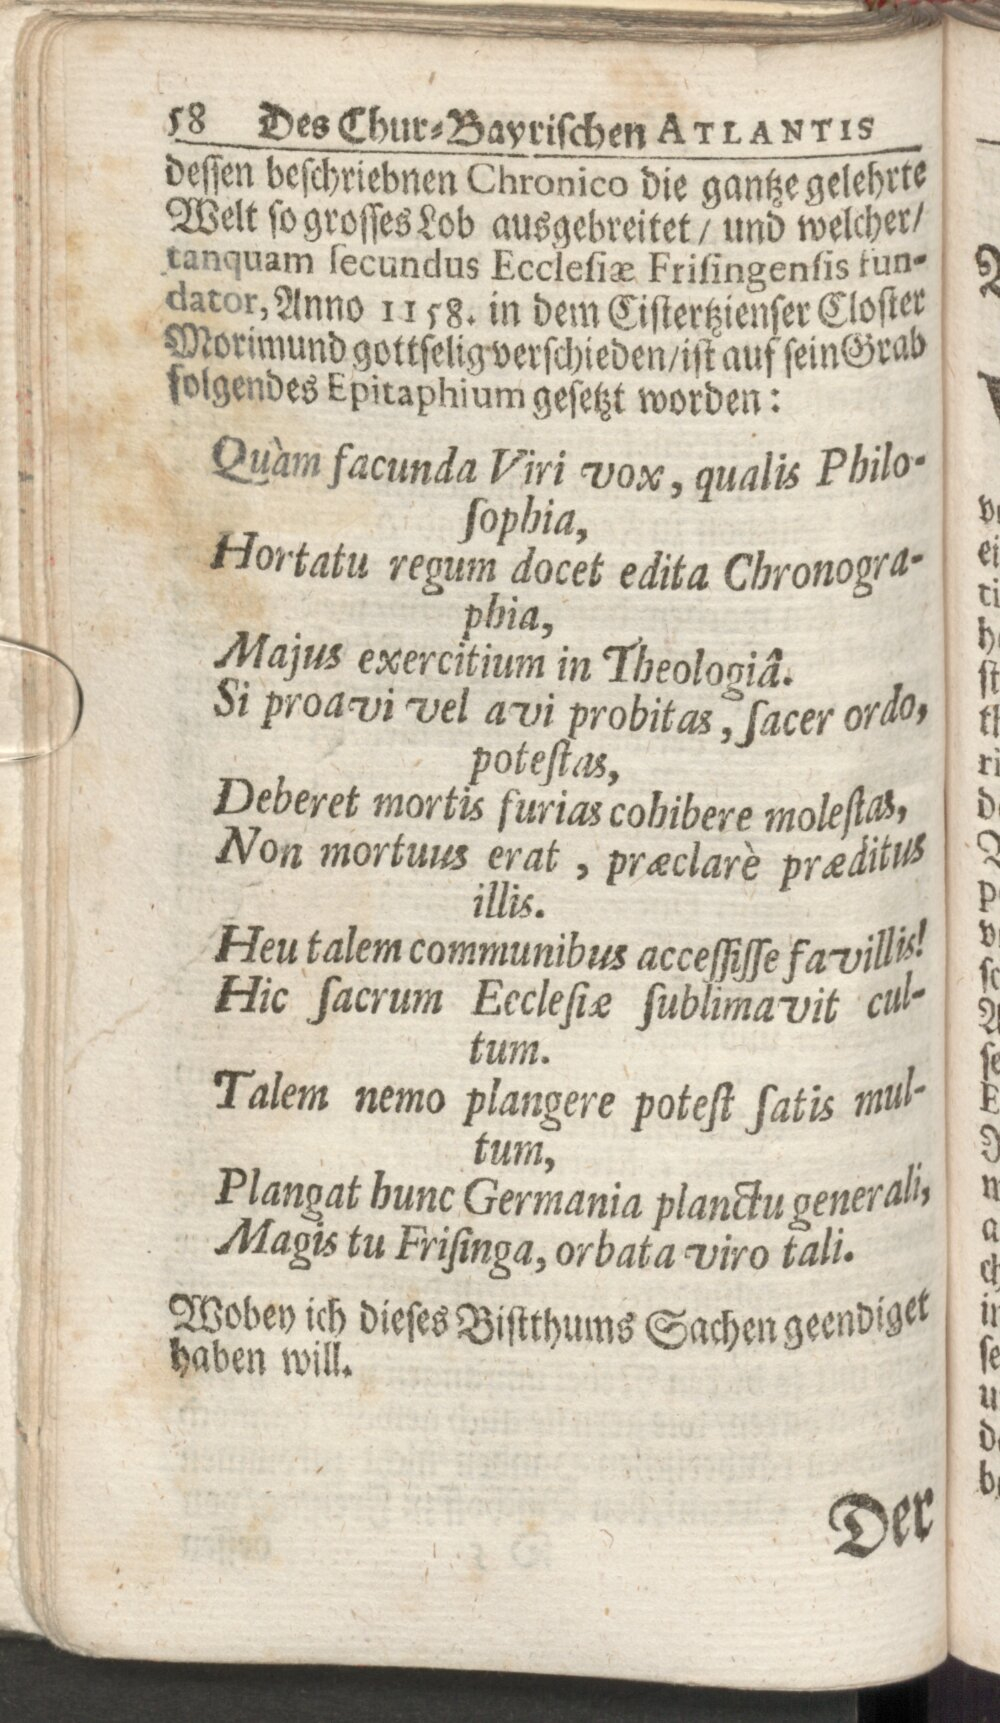 58 Des Chur-Bayrischen ATLANTIS
dessen beschriebnen Chronico die gantze gelehrte
Welt so grosses Lob ausgebreitet / und welcher /
tanquam secundus Ecclesiæ Frisingensis fun-
dator, Anno 1158. in dem Cistertzienser Closter
Morimund gottselig verschieden / ist auf sein Grab
folgendes Epitaphium gesetzt worden:
Quàm facunda Viri vox, qualis Philo-
sophia,
Hortatu regum docet edita Chronogra-
phia,
Majus exercitium in Theologiâ.
Si proavi vel avi probitas, sacer ordo,
potestas,
Deberet mortis furias cohibere molestas,
Non mortuus erat, præclarè præditus
illis.
Heu talem communibus accessisse favillis!
Hic sacrum Ecclesiæ sublimavit cul-
tum.
Talem nemo plangere potest satis mul-
tum,
Plangat hunc Germania planctu generali,
Magis tu Frisinga, orbata viro tali.
Wobey ich dieses Bistthums Sachen geendiget
haben will.
Der